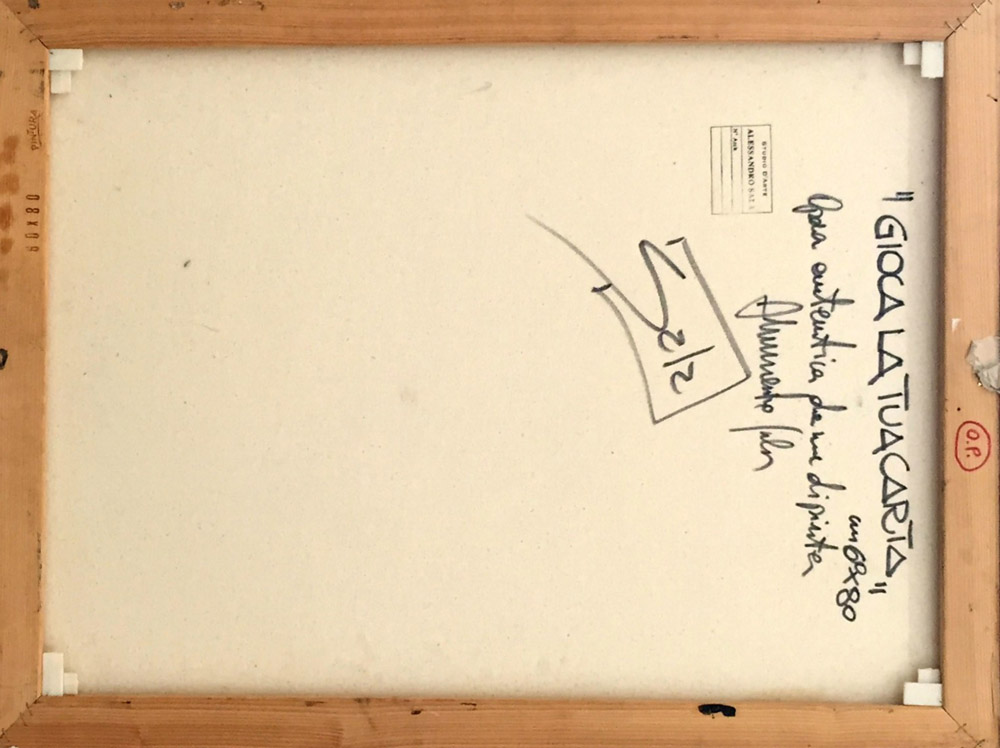 "GIOCA LA TUA CARTA"
cm 60x80
Opera autentica da me dipinta
STUDIO D'ARTE
ALESSANDRO SALA
N° Arch.
O.P.
PINTURA
60X80